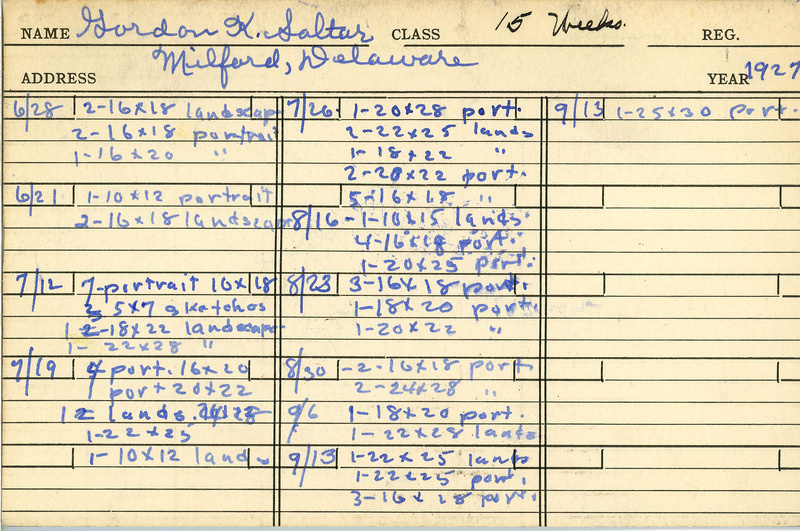 NAME Gordon K. Saltar CLASS 15 Weeks. REG.
Milford, Delaware
ADDRESS YEAR 1927
6/28 2-16x18 landscape
2-16x18 portrait
1-16x20 "
6/21 1-10x12 portrait
2-16x18 landscape
7/12 7-portrait 16x18
5x7 sketches
1 2-18x22 landscape
1- 22x28 "
7/19 4 port. 16x20
1 port 20x22
1 2 lands. 24x28
1-22x25
1-10x12 lands
7/26 1-20x28 port.
2-22x25 lands
1-18x22 "
2-20x22 port.
5-16x18 "
8/16-1-10x15 lands.
4-16x18 port.
1-20x25 port.
8/23 3-16x18 port.
1-18x20 port.
1-20x22 "
8/30 -2-16x18 port
2-24x28 "
9/6 1-18x20 port.
1-22x28 lands
9/13 1-22x25 lands
1-22x25 port.
3-16x28 port.
9/13 1-25x30 port.